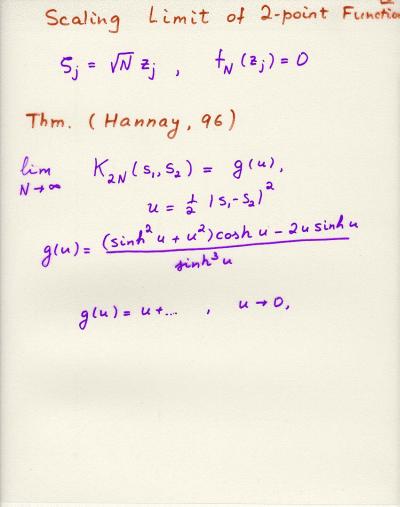 Scaling Limit of 2-point Function
Sj = √N zj , fN(zj) = 0
Thm. (Hannay, 96)
lim N→∞ K2N(s1, s2) = g(u),
u = 1/2 |s1 - s2|^2
g(u) = (sinh^2 u + u^2) cosh u - 2u sinh u / sinh^3 u
g(u) = u + ... , u → 0,